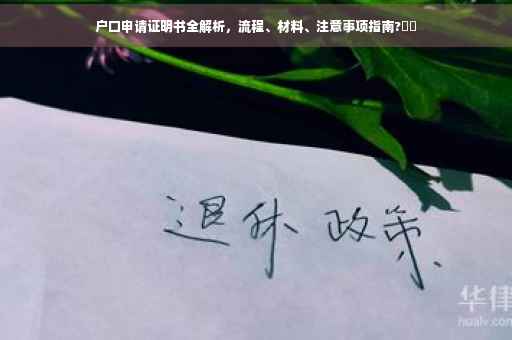 户口申请证明书全解析，流程、材料、注意事项指南?
退休 政策
华律
hualv.com